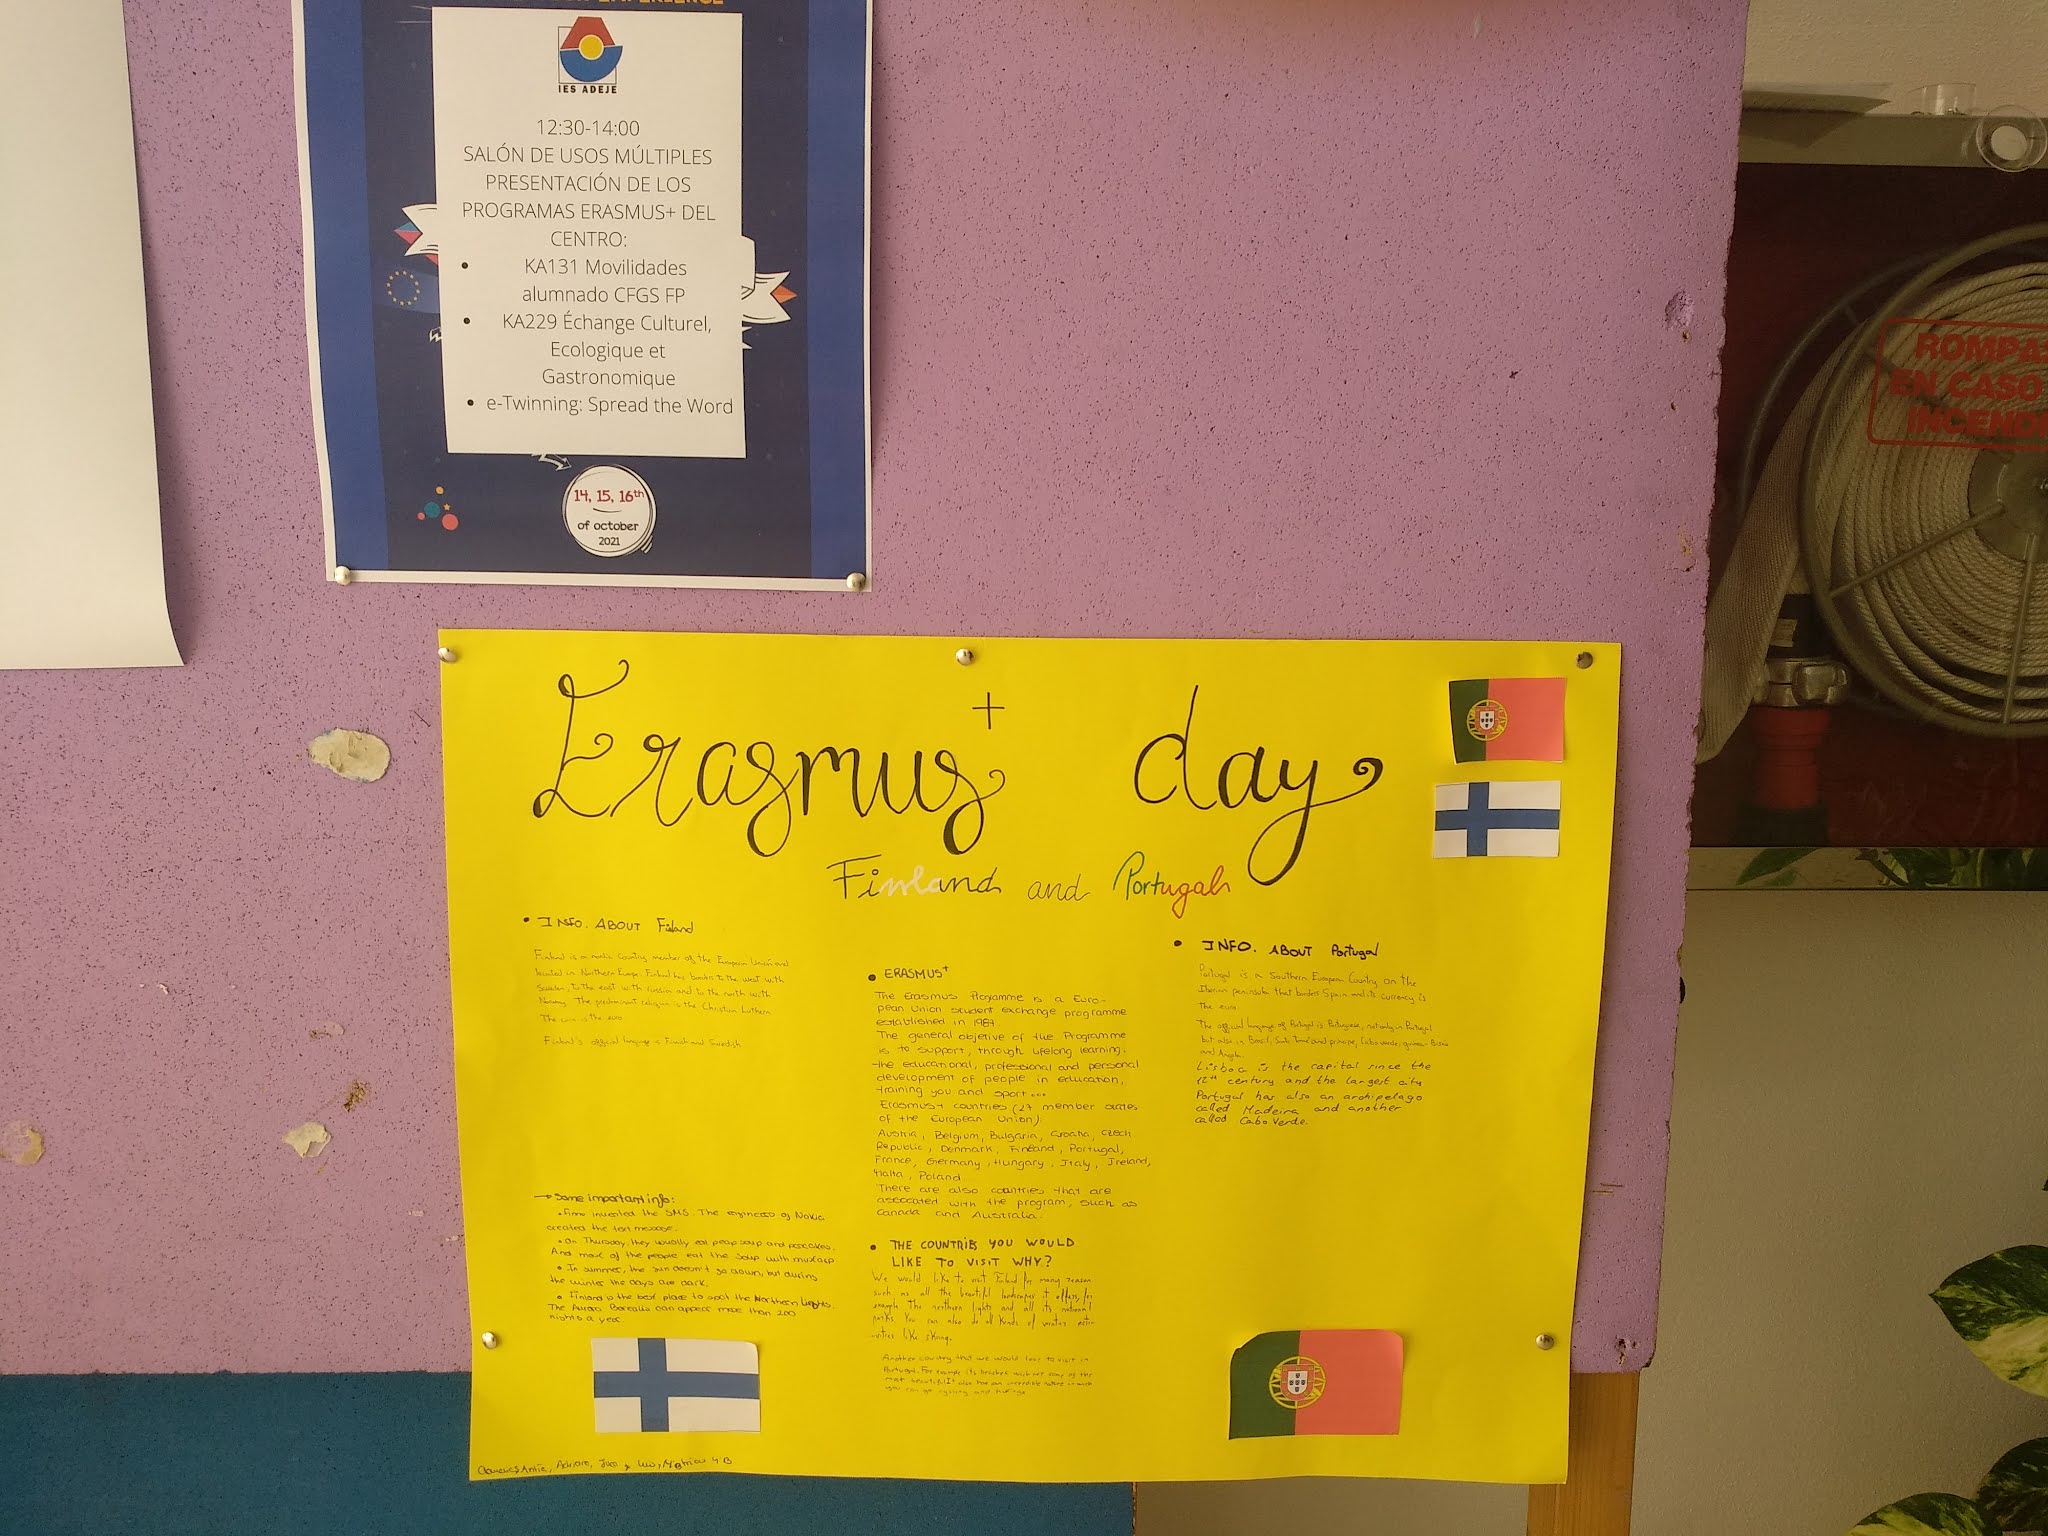 IES ADEJE
12:30-14:00
SALÓN DE USOS MÚLTIPLES
PRESENTACIÓN DE LOS
PROGRAMAS ERASMUS+ DEL
CENTRO:
• KA131 Movilidades
alumnado CFGS FP
• KA229 Échange Culturel,
Ecologique et
Gastronomique
• e-Twinning: Spread the Word
14, 15, 16th
of october
2021
ROMPA
EN CASO
INCENDI
Erasmus+ day
Finland and Portugal
• INFO. ABOUT Finland
Finland is a nordic country member of the European Union and
located in Northern Europe. Finland has borders to the west with
Sweden, to the east with russia and to the north with
Norway. The predominant religion is the Christian Luthern
The coin is the euro
Finland's official language is Finish and Swedish
→ Some important info:
• Finns invented the SMS. The engineers of Nokia
created the text message.
• On Thursday, they usually eat peap soup and pancakes.
And most of the people eat the soup with mustard
• In summer, the sun doesn't go down, but during
the winter the days are dark.
• Finland is the best place to spot the Northern Lights.
The Aurora Borealis can appear more than 200
nights a year
• ERASMUS+
The Erasmus Programme is a Euro-
pean Union student exchange programme
established in 1987.
The general objetive of the Programme
is to support, through lifelong learning,
the educational, professional and personal
development of people in education,
training you and sport...
Erasmus+ countries (27 member states
of the European Union):
Austria, Belgium, Bulgaria, Croatia, Czech
Republic, Denmark, Finland, Portugal,
France, Germany, Hungary, Italy, Ireland,
Malta, Poland.
There are also countries that are
associated with the program, such as
Canada and Australia.
• THE COUNTRIES YOU WOULD
LIKE TO VISIT WHY?
We would like to visit Finland for many reason
such as all the beautiful landscapes it offers, for
example The northern lights and all its national
parks. You can also do all kinds of winter acti-
vities like skiing.
Another country that we would love to visit is
Portugal. For example its beaches
most beautiful. It also has an incredible
you can go cycling and
• INFO. ABOUT Portugal
Portugal is a Southern European Country on the
Iberian peninsula that borders Spain and its currency is
the euro.
The official language of Portugal is Portuguese, not only in Portugal
but also in Brasil, Santo Tomé and principe, Cabo verde, guinea-Bisau
and Angola.
Lisboa is the capital since the
12th century and the largest city
Portugal has also an archipelago
called Madeira and another
called Cabo Verde.
Adriana, 4ºB